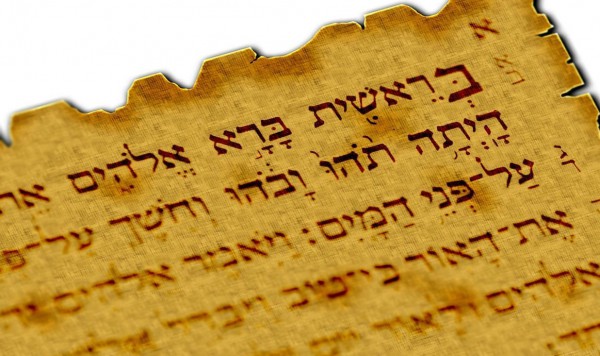 א
בְּרֵאשִׁית בָּרָא אֱלֹהִים
הָיְתָה תֹהוּ וָבֹהוּ וְחֹשֶׁךְ עַל־
ג עַל־פְּנֵי הַמָּיִם׃ וַיֹּאמֶר אֱלֹהִים
אֶת־הָאוֹר כִּי־טוֹב וַיַּבְדֵּל
אֱלֹהִים לָאוֹר